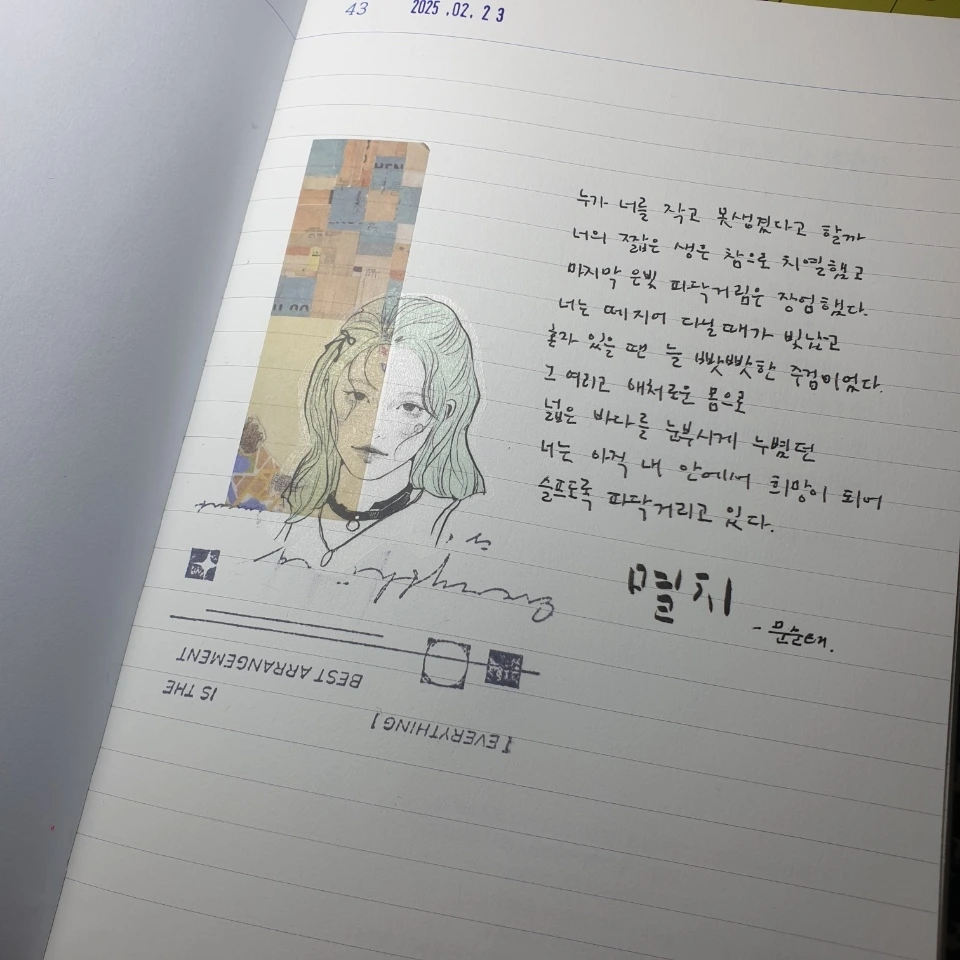 43
2025.02.23
누가 너를 작고 못생겼다고 할까
너의 짧은 생은 참으로 치열했고
마지막 은빛 파닥거림은 장엄했다.
너는 떼지어 다닐 때가 빛났고
혼자 있을 땐 늘 빳빳한 주검이었다.
그 여리고 애처로운 몸으로
넓은 바다를 눈부시게 누볐던
너는 아직 내 안에서 희망이 되어
슬프도록 파닥거리고 있다.
멸치
- 문순태.
[EVERYTHING]
IS THE
BEST ARRANGEMENT